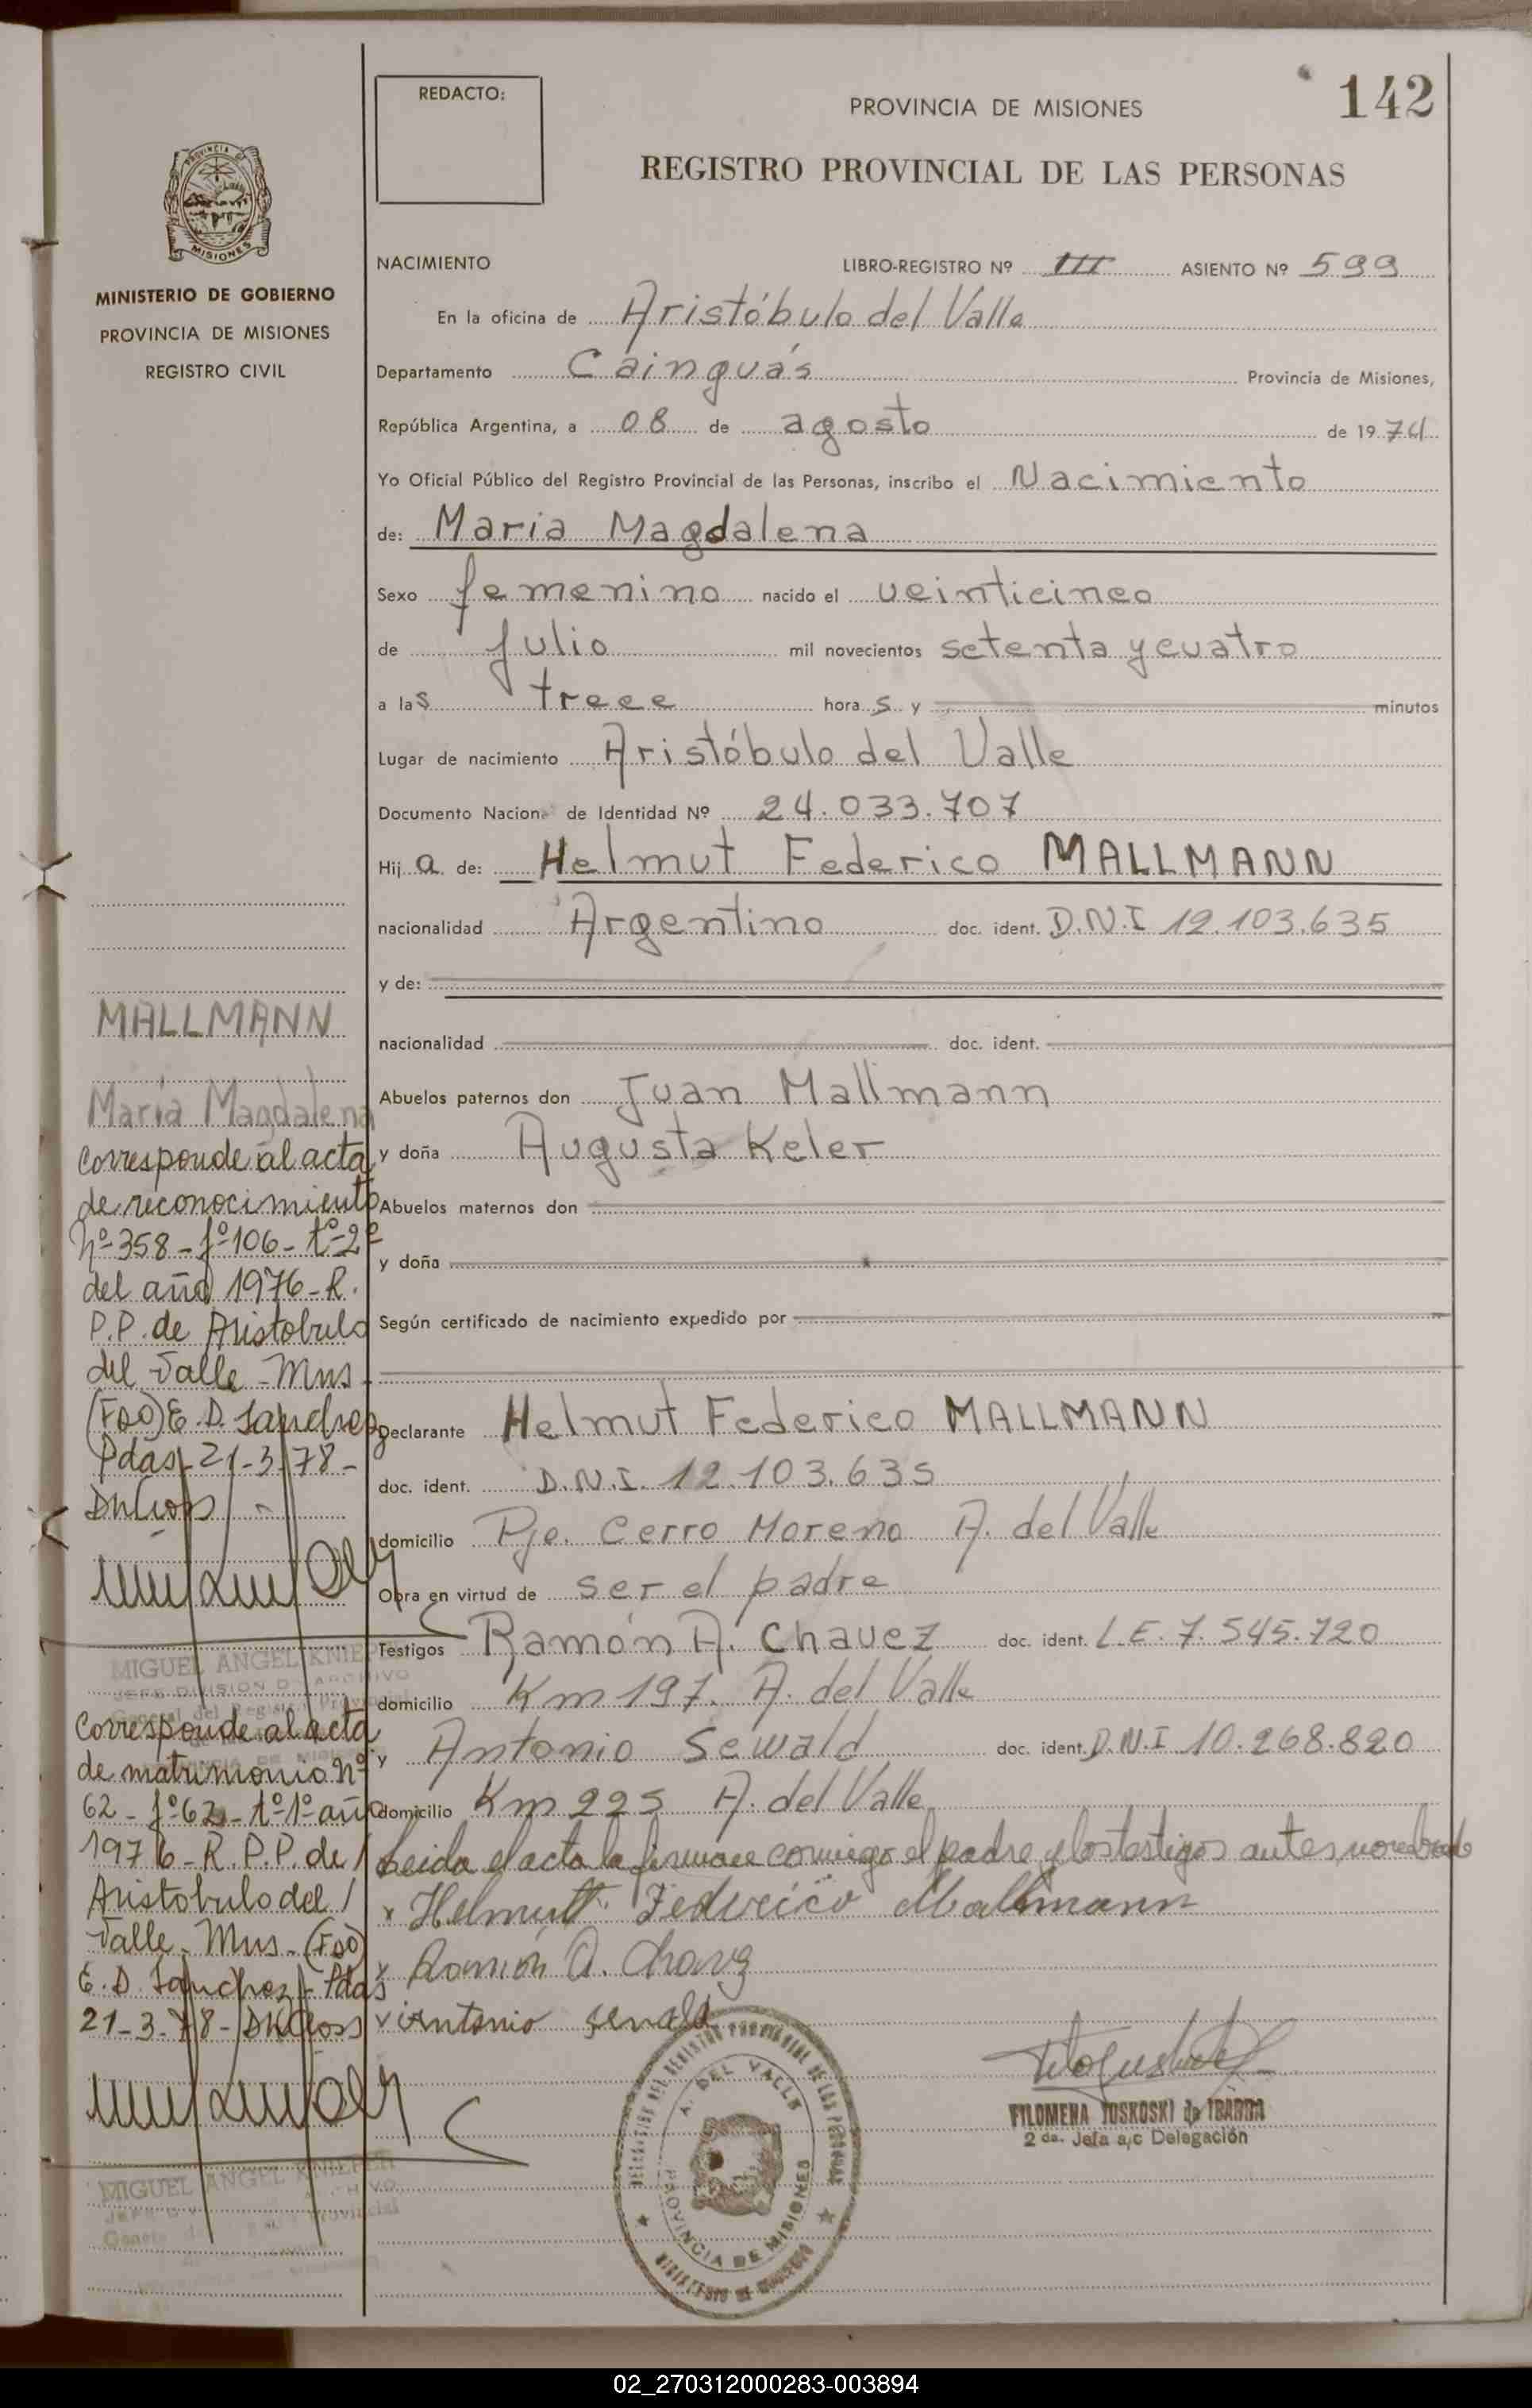 142
REDACTO:
PROVINCIA DE MISIONES
REGISTRO PROVINCIAL DE LAS PERSONAS
MISIONES
MINISTERIO DE GOBIERNO
PROVINCIA DE MISIONES
REGISTRO CIVIL
NACIMIENTO LIBRO-REGISTRO Nº III ASIENTO Nº 599
En la oficina de Aristóbulo del Valle
Departamento Cainguás Provincia de Misiones,
República Argentina, a 08 de agosto de 1974
Yo Oficial Público del Registro Provincial de las Personas, inscribo el Nacimiento
de: Maria Magdalena
Sexo femenino nacido el veinticinco
de julio mil novecientos setenta y cuatro
a las trece horas y minutos
Lugar de nacimiento Aristóbulo del Valle
Documento Nacion de Identidad Nº 24.033.707
Hija de: Helmut Federico MALLMANN
nacionalidad Argentino doc. ident. D.N.I 12.103.635
y de:
nacionalidad doc. ident.
Abuelos paternos don Juan Mallmann
y doña Augusta Keler
Abuelos maternos don
y doña
Según certificado de nacimiento expedido por
Declarante Helmut Federico MALLMANN
doc. ident. D.N.I. 12.103.635
domicilio Pje. Cerro Moreno A. del Valle
Obra en virtud de ser el padre
Testigos Ramón A. Chavez doc. ident. L.E. 7.545.720
domicilio Km 197. A. del Valle
y Antonio Sewald doc. ident. D.N.I 10.268.820
domicilio Km 225 A. del Valle
Leida el acta la firman conmigo el padre y los testigos antes nombrado
x Helmutt Federico Mallmann
x Ramón A. Chavez
x Antonio Sewald
FILOMENA TOSKOSKI de IBARRA
2 da. Jefa a/c Delegación
DELEGACION DEL REGISTRO PROVINCIAL DE LAS PERSONAS
A. DEL VALLE
PROVINCIA DE MISIONES
MINISTERIO DE GOBIERNO
MALLMANN
María Magdalena
Corresponde al acta
de reconocimiento
Nº 358 - fº 106 - tº 2º
del año 1976 - R.
P.P. de Aristobulo
del Valle - Mns.
(FDO) E. D. Sanchez
Pdas 21-3-78 -
MIGUEL ANGEL KNIEPER
JEFE DIVISION DE ARCHIVO
General del Registro Provincial
Corresponde al acta
de matrimonio nº
62 - fº 62 - tº 1º año
1976 - R. P.P. de /
Aristobulo del /
Valle - Mns - (FDO)
E. D. Sanchez - Pdas
21-3-78 -
MIGUEL ANGEL KNIEPER
02_270312000283-003894